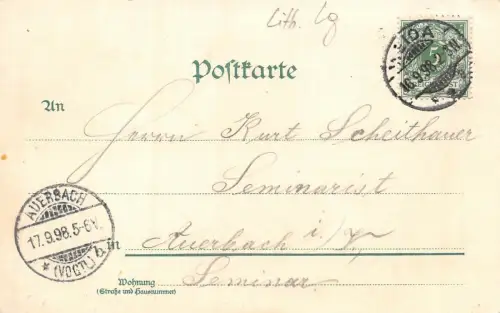 Lith. Lg
Postkarte
16.9.98.
5
An
Herrn Kurt Scheithauer
Seminarist
AUERBACH
17.9.98.5-6V.
(VOGTL.) b
in Auerbach i/V,
Wohnung
(Straße und Hausnummer)
Seminar